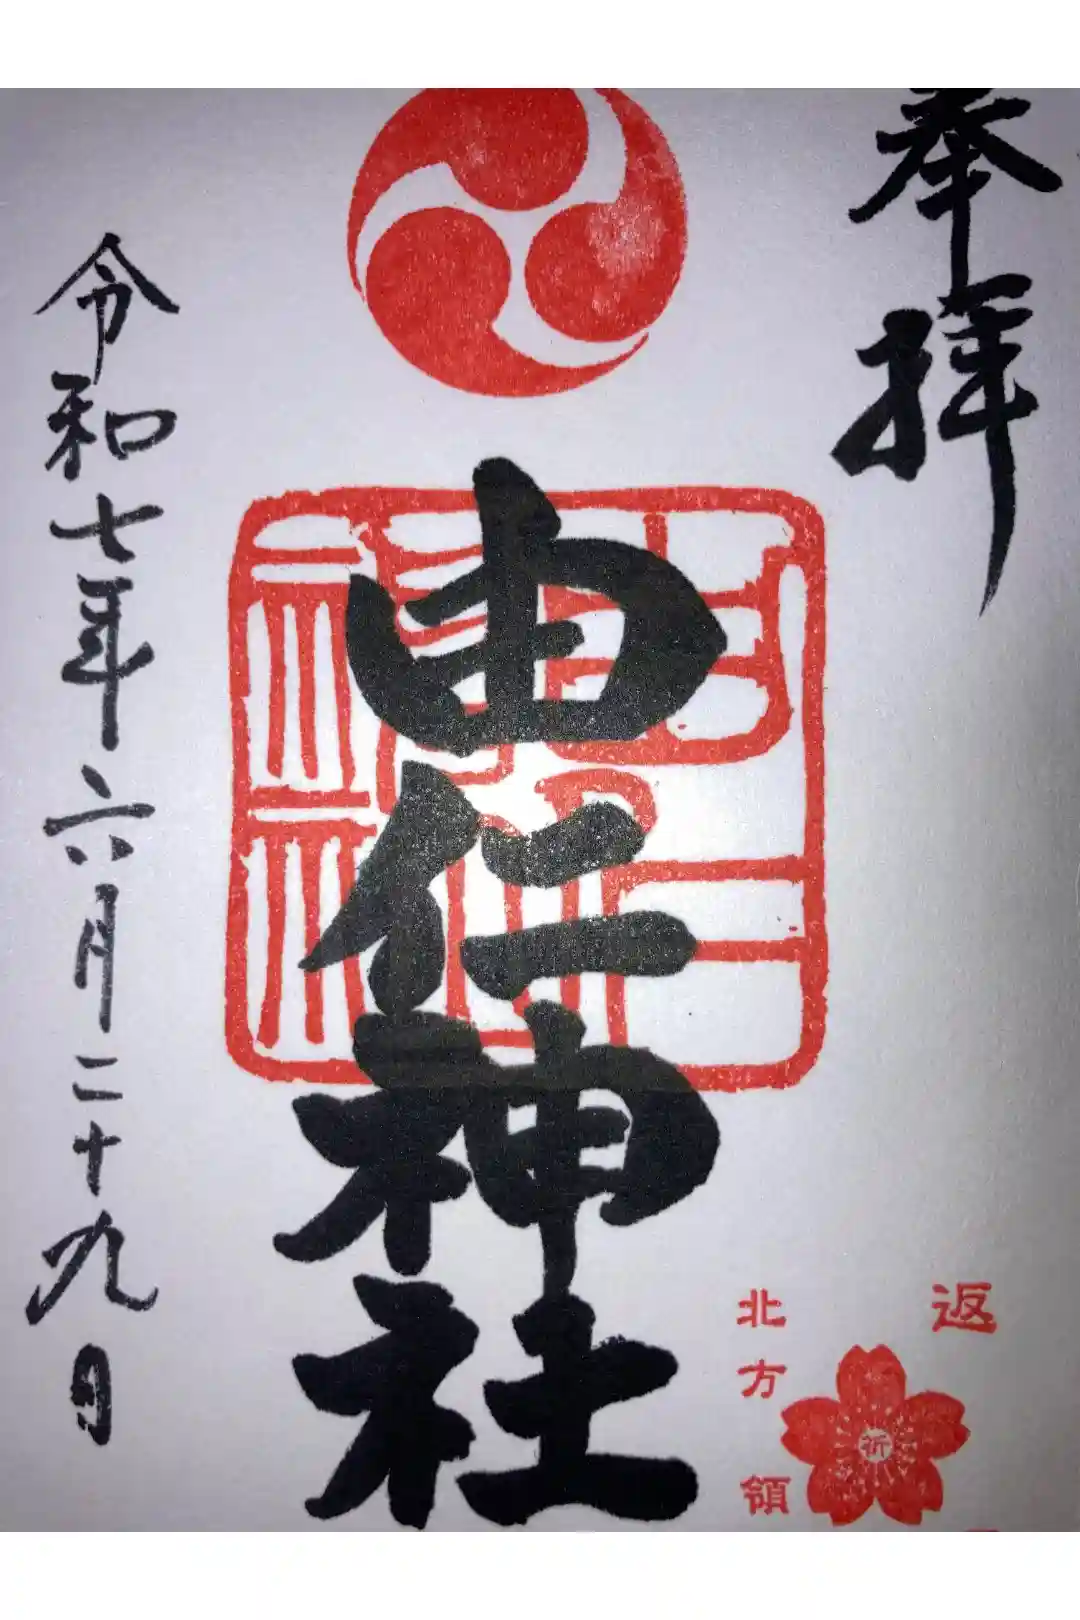 奉拝
由仁神社
由仁神社
令和七年六月二十九日
返
祈
北方領